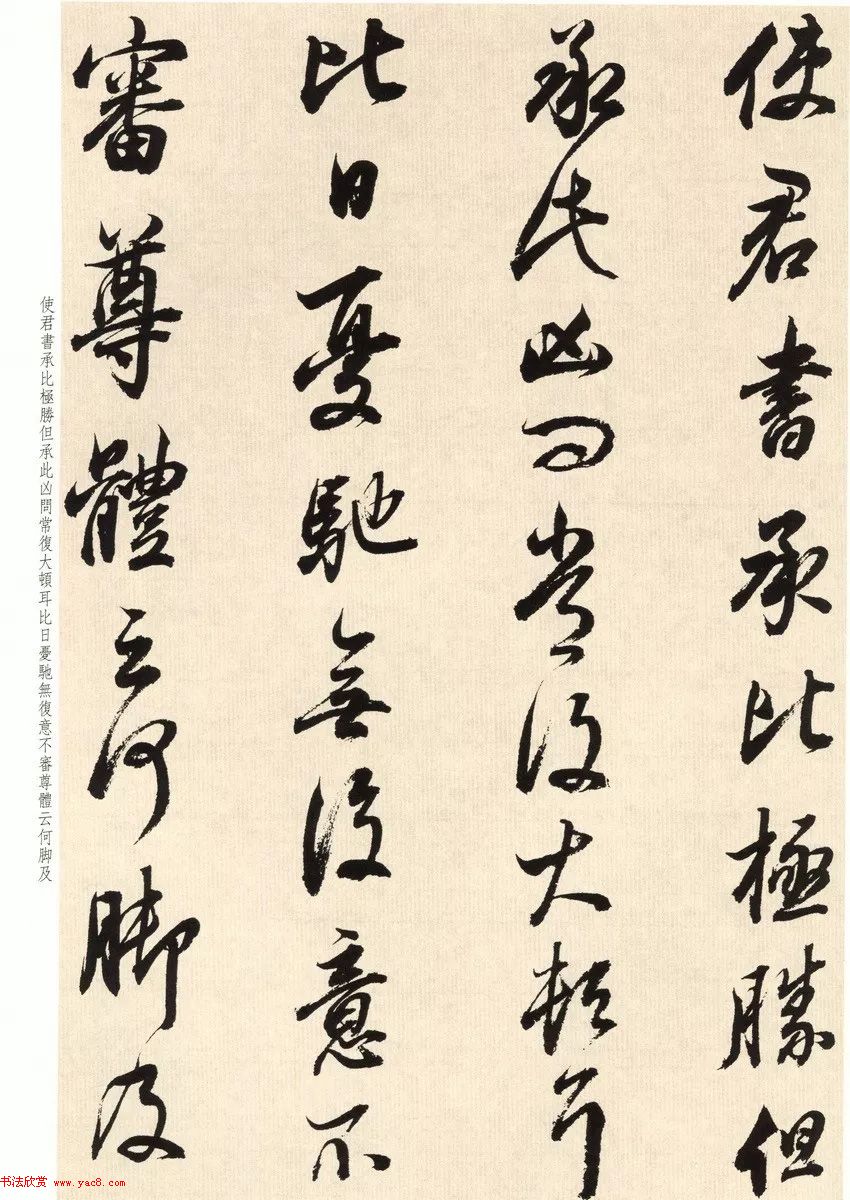 使君書承比極勝但
承此凶問常復大頓耳
比日憂馳無復意不
審尊體云何脚及
使君書承比極勝但承此凶問常復大頓耳比日憂馳無復意不審尊體云何脚及
书法欣赏 www.yac8.com